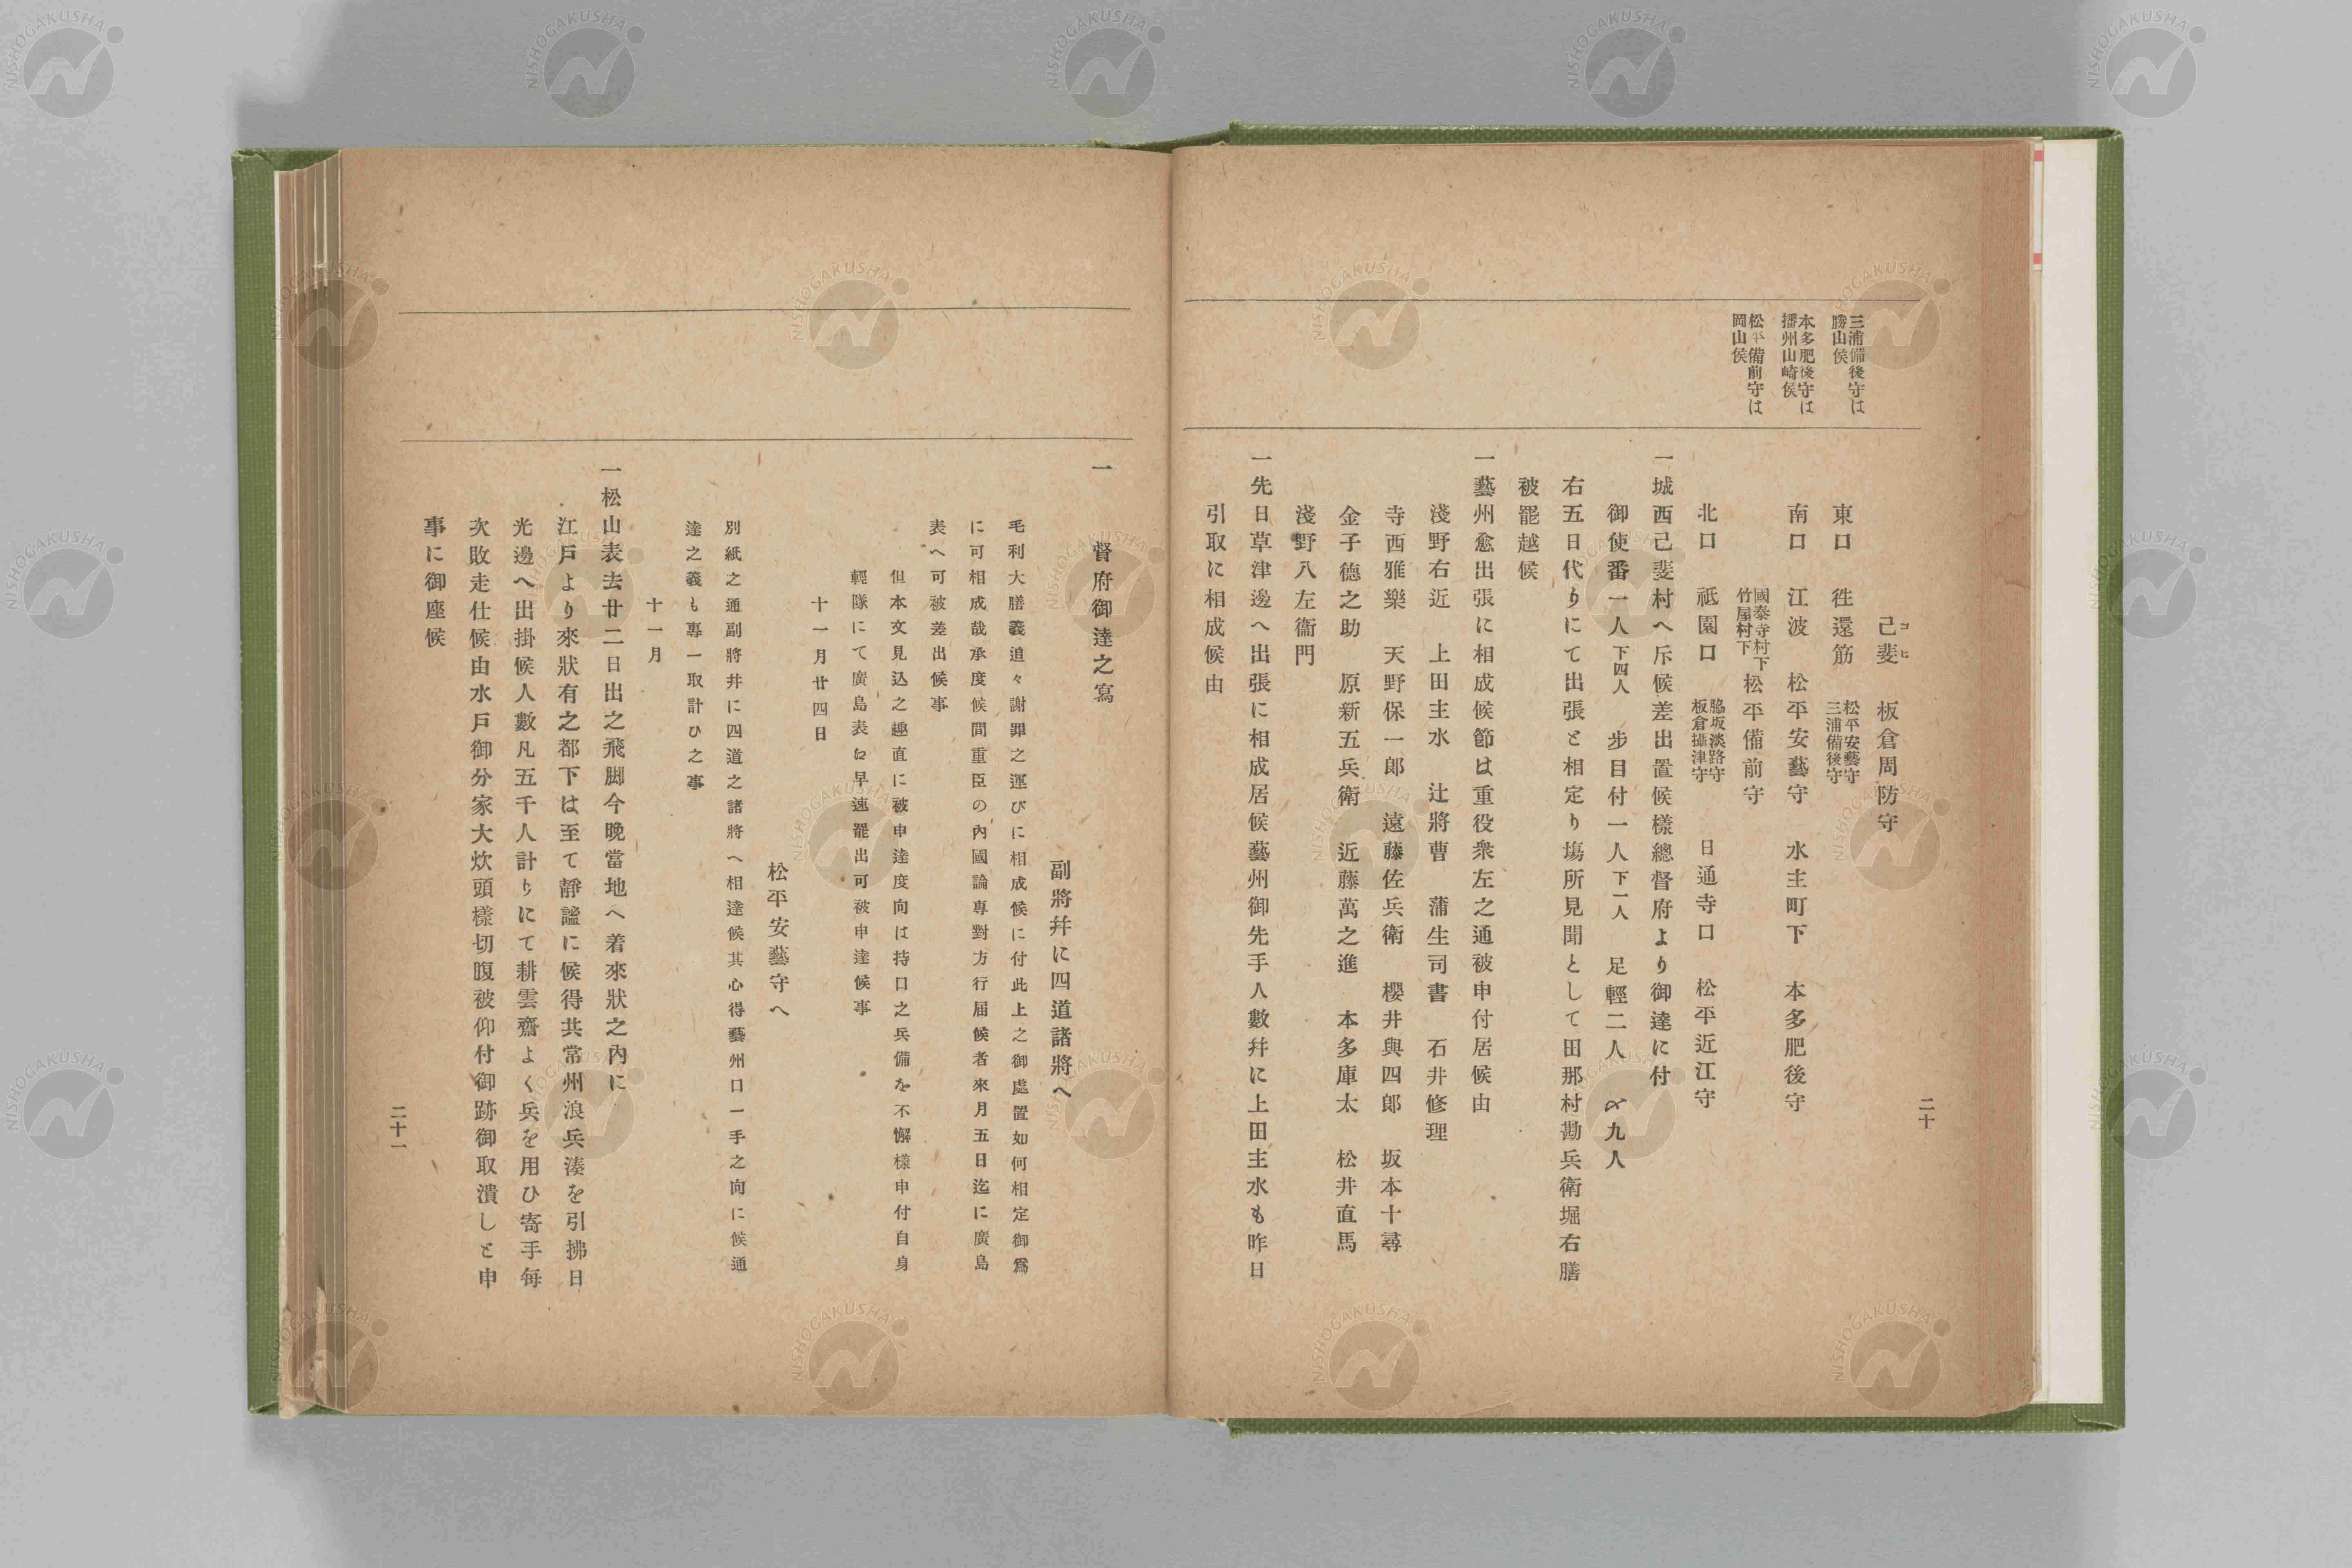 三浦備後守は
勝山侯
本多肥後守は
播州山崎侯
松平備前守は
岡山侯
己斐 板倉周防守
コヒ
東口 徃還筋 松平安藝守 三浦備後守
南口 江波 松平安藝守 水主町下 本多肥後守
國泰寺村下 竹屋村下 松平備前守
北口 祗園口 脇坂淡路守 板倉攝津守 日通寺口 松平近江守
一城西己斐村へ斥候差出置候樣總督府より御達に付
御使番一人下四人 步目付一人下一人 足輕二人 〆九人
右五日代りにて出張と相定り塲所見聞として田那村勘兵衛堀右膳
被罷越候
一藝州愈出張に相成候節は重役衆左之通被申付居候由
淺野右近 上田主水 辻將曹 蒲生司書 石井修理
寺西雅樂 天野保一郞 遠藤佐兵衛 櫻井與四郞 坂本十尋
金子德之助 原新五兵衛 近藤萬之進 本多庫太 松井直馬
淺野八左衞門
一先日草津邊へ出張に相成居候藝州御先手人數幷に上田主水も昨日
引取に相成候由
二十
一 督府御達之寫
副將幷に四道諸將へ
毛利大膳義追々謝罪之運びに相成候に付此上之御處置如何相定御爲
に可相成哉承度候間重臣の內國論專對方行届候者來月五日迄に廣島
表へ可被差出候事
但本文見込之趣直に被申達度向は持口之兵備を不懈樣申付自身
輕隊にて廣島表に早速罷出可被申達候事
十一月廿四日
松平安藝守へ
別紙之通副將幷に四道之諸將へ相達候其心得藝州口一手之向に候通
達之義も專一取計ひ之事
十一月
一松山表去廿二日出之飛脚今晚當地へ着來狀之內に
江戶より來狀有之都下は至て靜謐に候得共常州浪兵湊を引拂日
光邊へ出掛候人數凡五千人計りにて耕雲齋よく兵を用ひ寄手每
次敗走仕候由水戶御分家大炊頭樣切腹被仰付御跡御取潰しと申
事に御座候
二十一
NISHOGAKUSHA